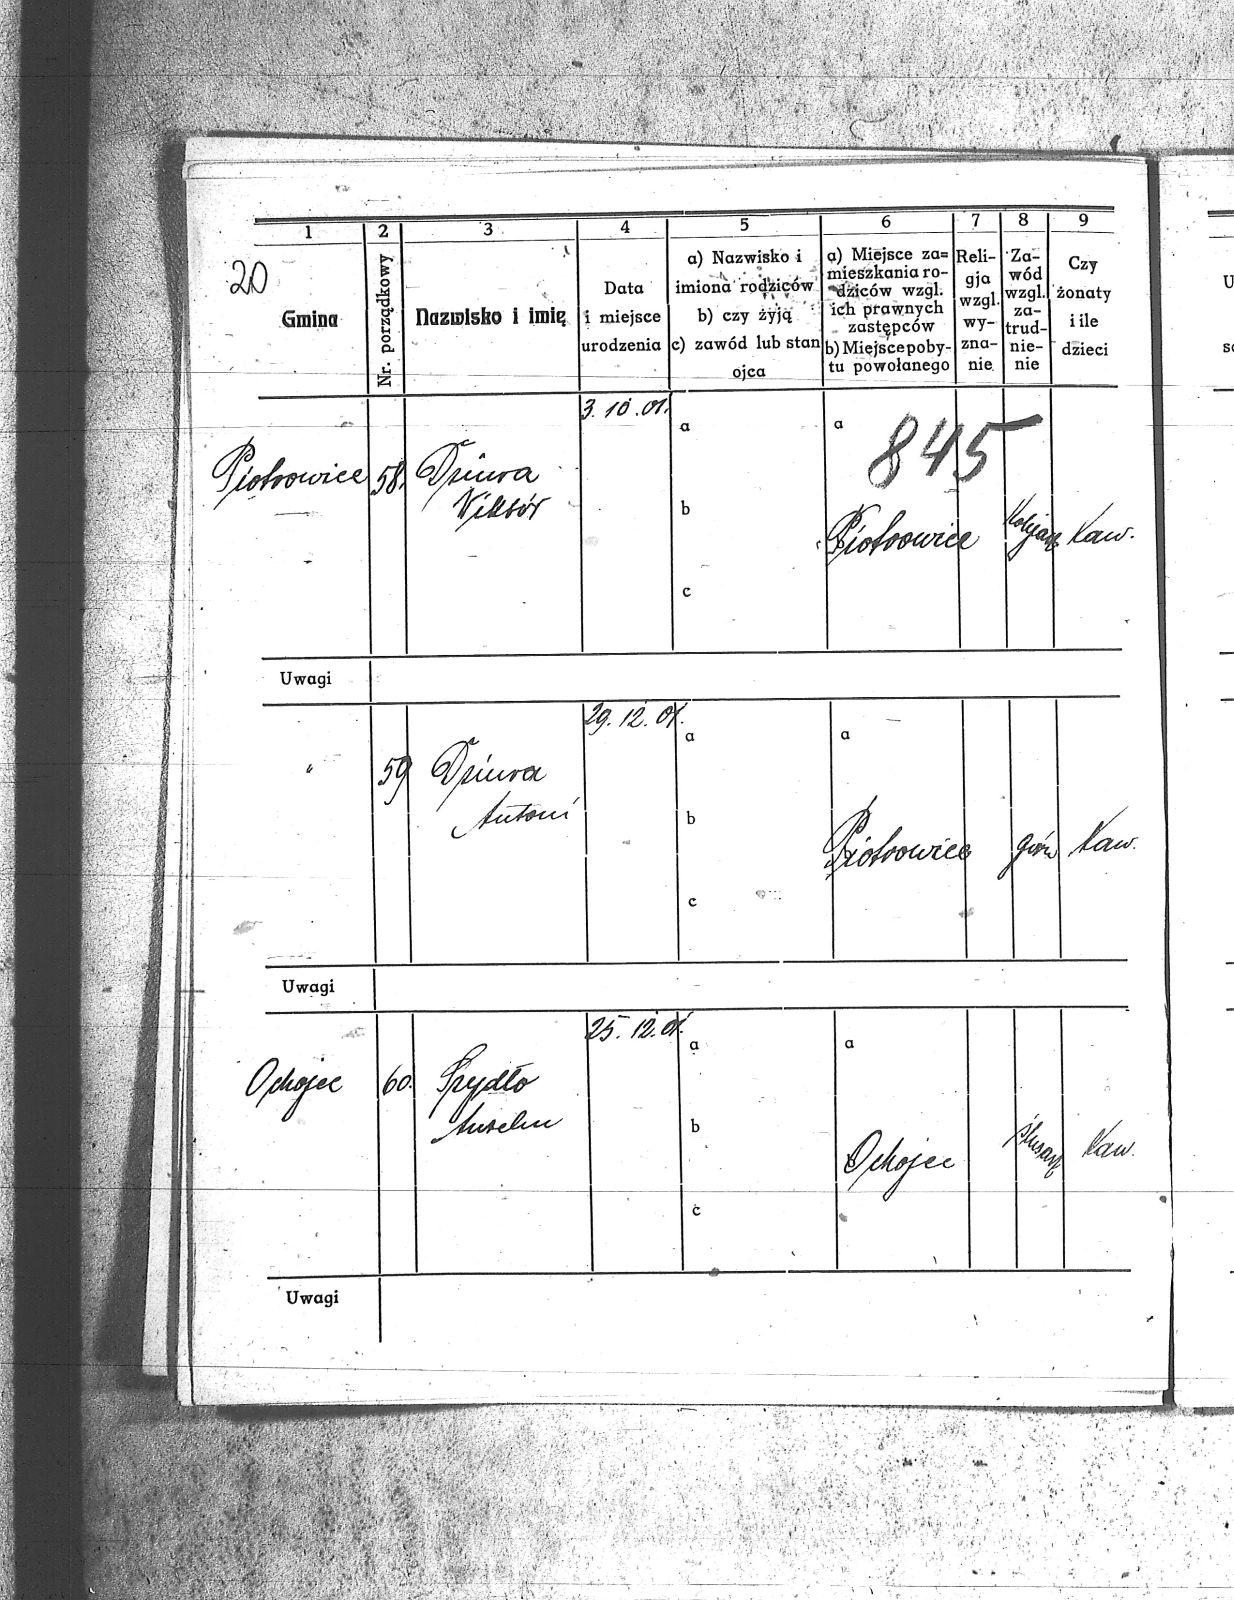 1 2 3 4 5 6 7 8 9
20
Gmina
Nr. porządkowy
Nazwisko i imię
Data
i miejsce
urodzenia
a) Nazwisko i
imiona rodziców
b) czy żyją
c) zawód lub stan
ojca
a) Miejsce za=
mieszkania ro-
dziców wzgl.
ich prawnych
zastępców
b) Miejsce poby-
tu powołanego
Reli-
gja
wzgl.
wy-
zna-
nie
Za-
wód
wzgl.
za-
trud-
nie-
nie
Czy
żonaty
i ile
dzieci
3.10.01.
a
a
845
Piotrowice 58. Dziura
Wiktór
b
b
Piotrowice Kolejarz Kaw.
c
Uwagi
29.12.01.
a
a
" 59 Dziura
Antoni
b
b
Piotrowice górn Kaw.
c
Uwagi
25.12.01.
a
a
Ochojec 60. Szydło
Anselm
b
b
Ochojec ślusarz Kaw.
c
Uwagi